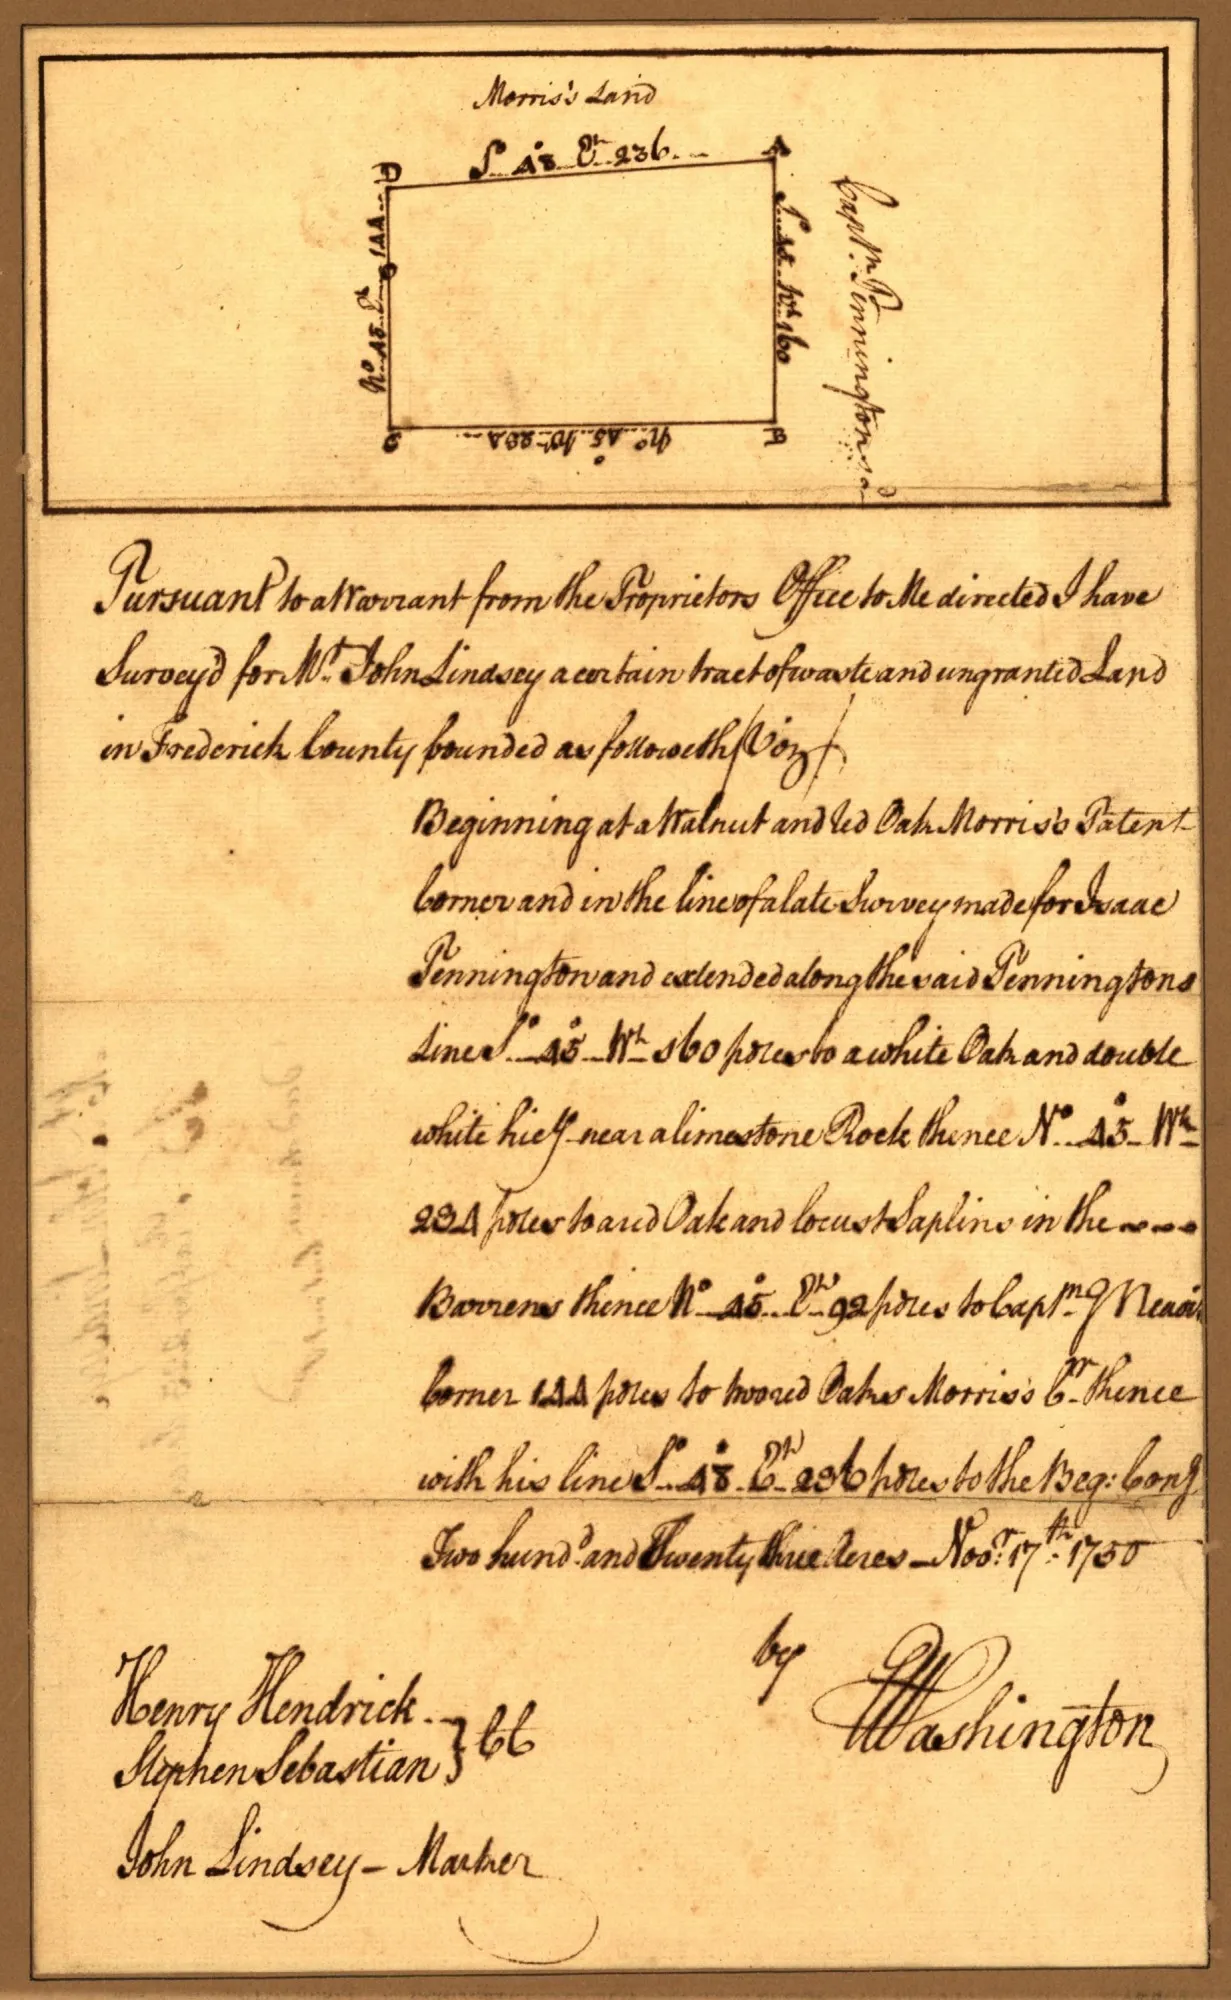 Morris's Land
D
So 48° Et 236
A
So 45 Wt 160
Captn. Penningtons Ld
No 45 Et 144
C
No 45° Wt 234
B
Pursuant to a Warrant from the Proprietors Office to Me directed I have
Survey'd for Mr. John Lindsey a certain tract of waste and ungranted Land
in Frederick County bounded as followeth (Viz)
Beginning at a Walnut and Red Oak Morris's Patent
Corner and in the line of a late Survey made for Isaac
Pennington and extended along the said Penningtons
Line So 45° Wt 160 poles to a white Oak and double
white hicy near a limestone Rock thence No 45° Wt
234 poles to a red Oak and locust Saplins in the
Barrens thence No 45° Et 92 poles to Captn. G
Corner 144 poles to two red Oaks Morris's Cr thence
with his line So 48° Et 236 poles to the Beg: Cong
Two hund'd and Twenty three Acres — Novr: 17th: 1750
by
GWashington
Henry Hendrick
Stephen Sebastian } CC
John Lindsey — Marker